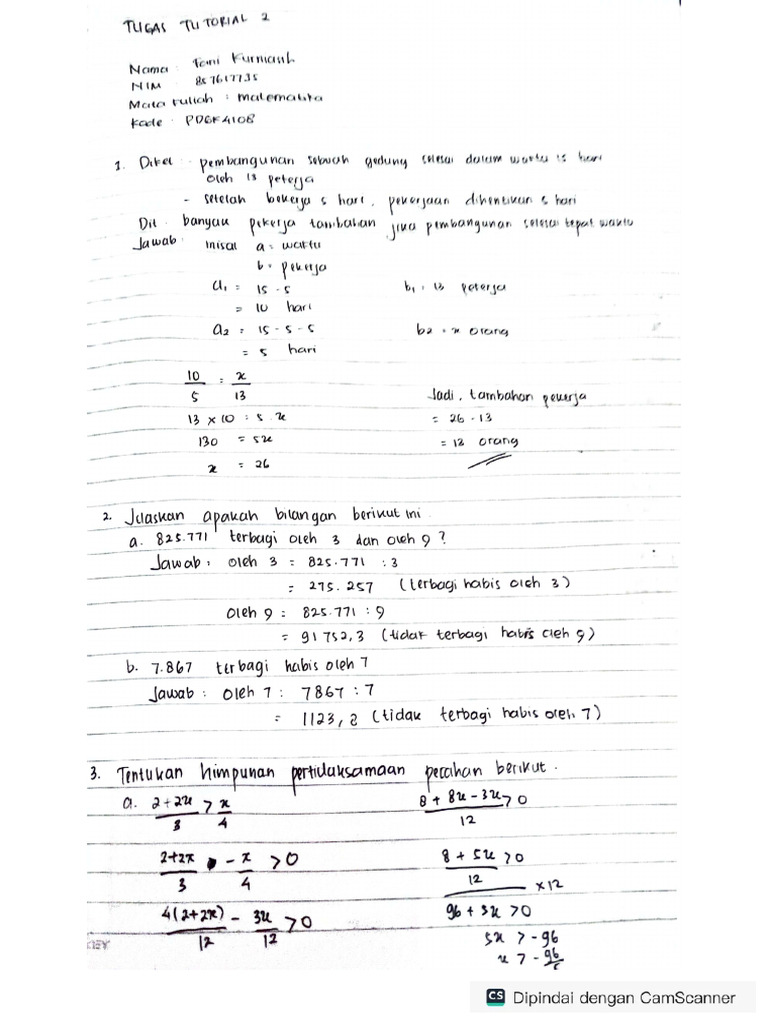 TUGAS TUTORIAL 2
Nama : Toni Kurniash
NIM 857617735
Mata kuliah : matematika
Kode : PDGK4108
1. Diket : pembangunan sebuah gedung selesai dalam waktu 15 hari
oleh 13 pekerja
- setelah bekerja 5 hari, pekerjaan dihentikan 5 hari
Dit : banyak pekerja tambahan jika pembangunan selesai tepat waktu
Jawab : misal a = waktu
b = pekerja
a1 = 15 - 5 b1 = 13 pekerja
= 10 hari
a2 = 15 - 5 - 5 b2 = x orang
= 5 hari
10/5 = x/13 Jadi, tambahan pekerja
13 x 10 = 5.x = 26 - 13
130 = 5x = 13 orang
x = 26
2. Jelaskan apakah bilangan berikut ini
a. 825.771 terbagi oleh 3 dan oleh 9 ?
Jawab : oleh 3 = 825.771 : 3
= 275.257 (terbagi habis oleh 3)
Oleh 9 = 825.771 : 9
= 91752,3 (tidak terbagi habis oleh 9)
b. 7.867 terbagi habis oleh 7
Jawab : oleh 7 : 7867 : 7
= 1123,8 (tidak terbagi habis oleh 7)
3. Tentukan himpunan pertidaksamaan pecahan berikut.
a. (2+2x)/3 > x/4 (8 + 8x - 3x)/12 > 0
(2+2x)/3 - x/4 > 0 (8 + 5x)/12 > 0 x12
4(2+2x)/12 - 3x/12 > 0 96 + 5x > 0
5x > -96
x > -96/5
KIEY
CS Dipindai dengan CamScanner